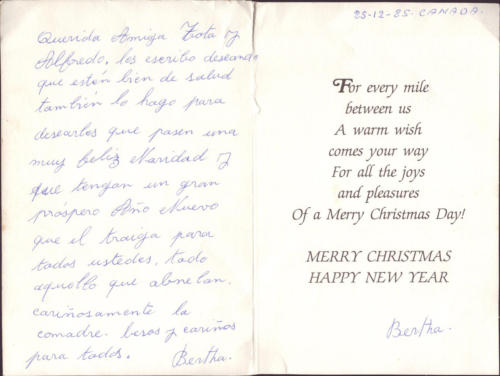 Querida Amiga Tota y
Alfredo, les escribo deseando
que estén bien de salud
también lo hago para
desearles que pasen una
muy feliz Navidad y
que tengan un gran
próspero Año Nuevo
que el traiga para
todos ustedes, todo
aquello que anhelan.
cariñosamente la
comadre. besos y cariños
para todos. Bertha.
25-12-85-CANADA.
For every mile
between us
A warm wish
comes your way
For all the joys
and pleasures
Of a Merry Christmas Day!
MERRY CHRISTMAS
HAPPY NEW YEAR
Bertha.